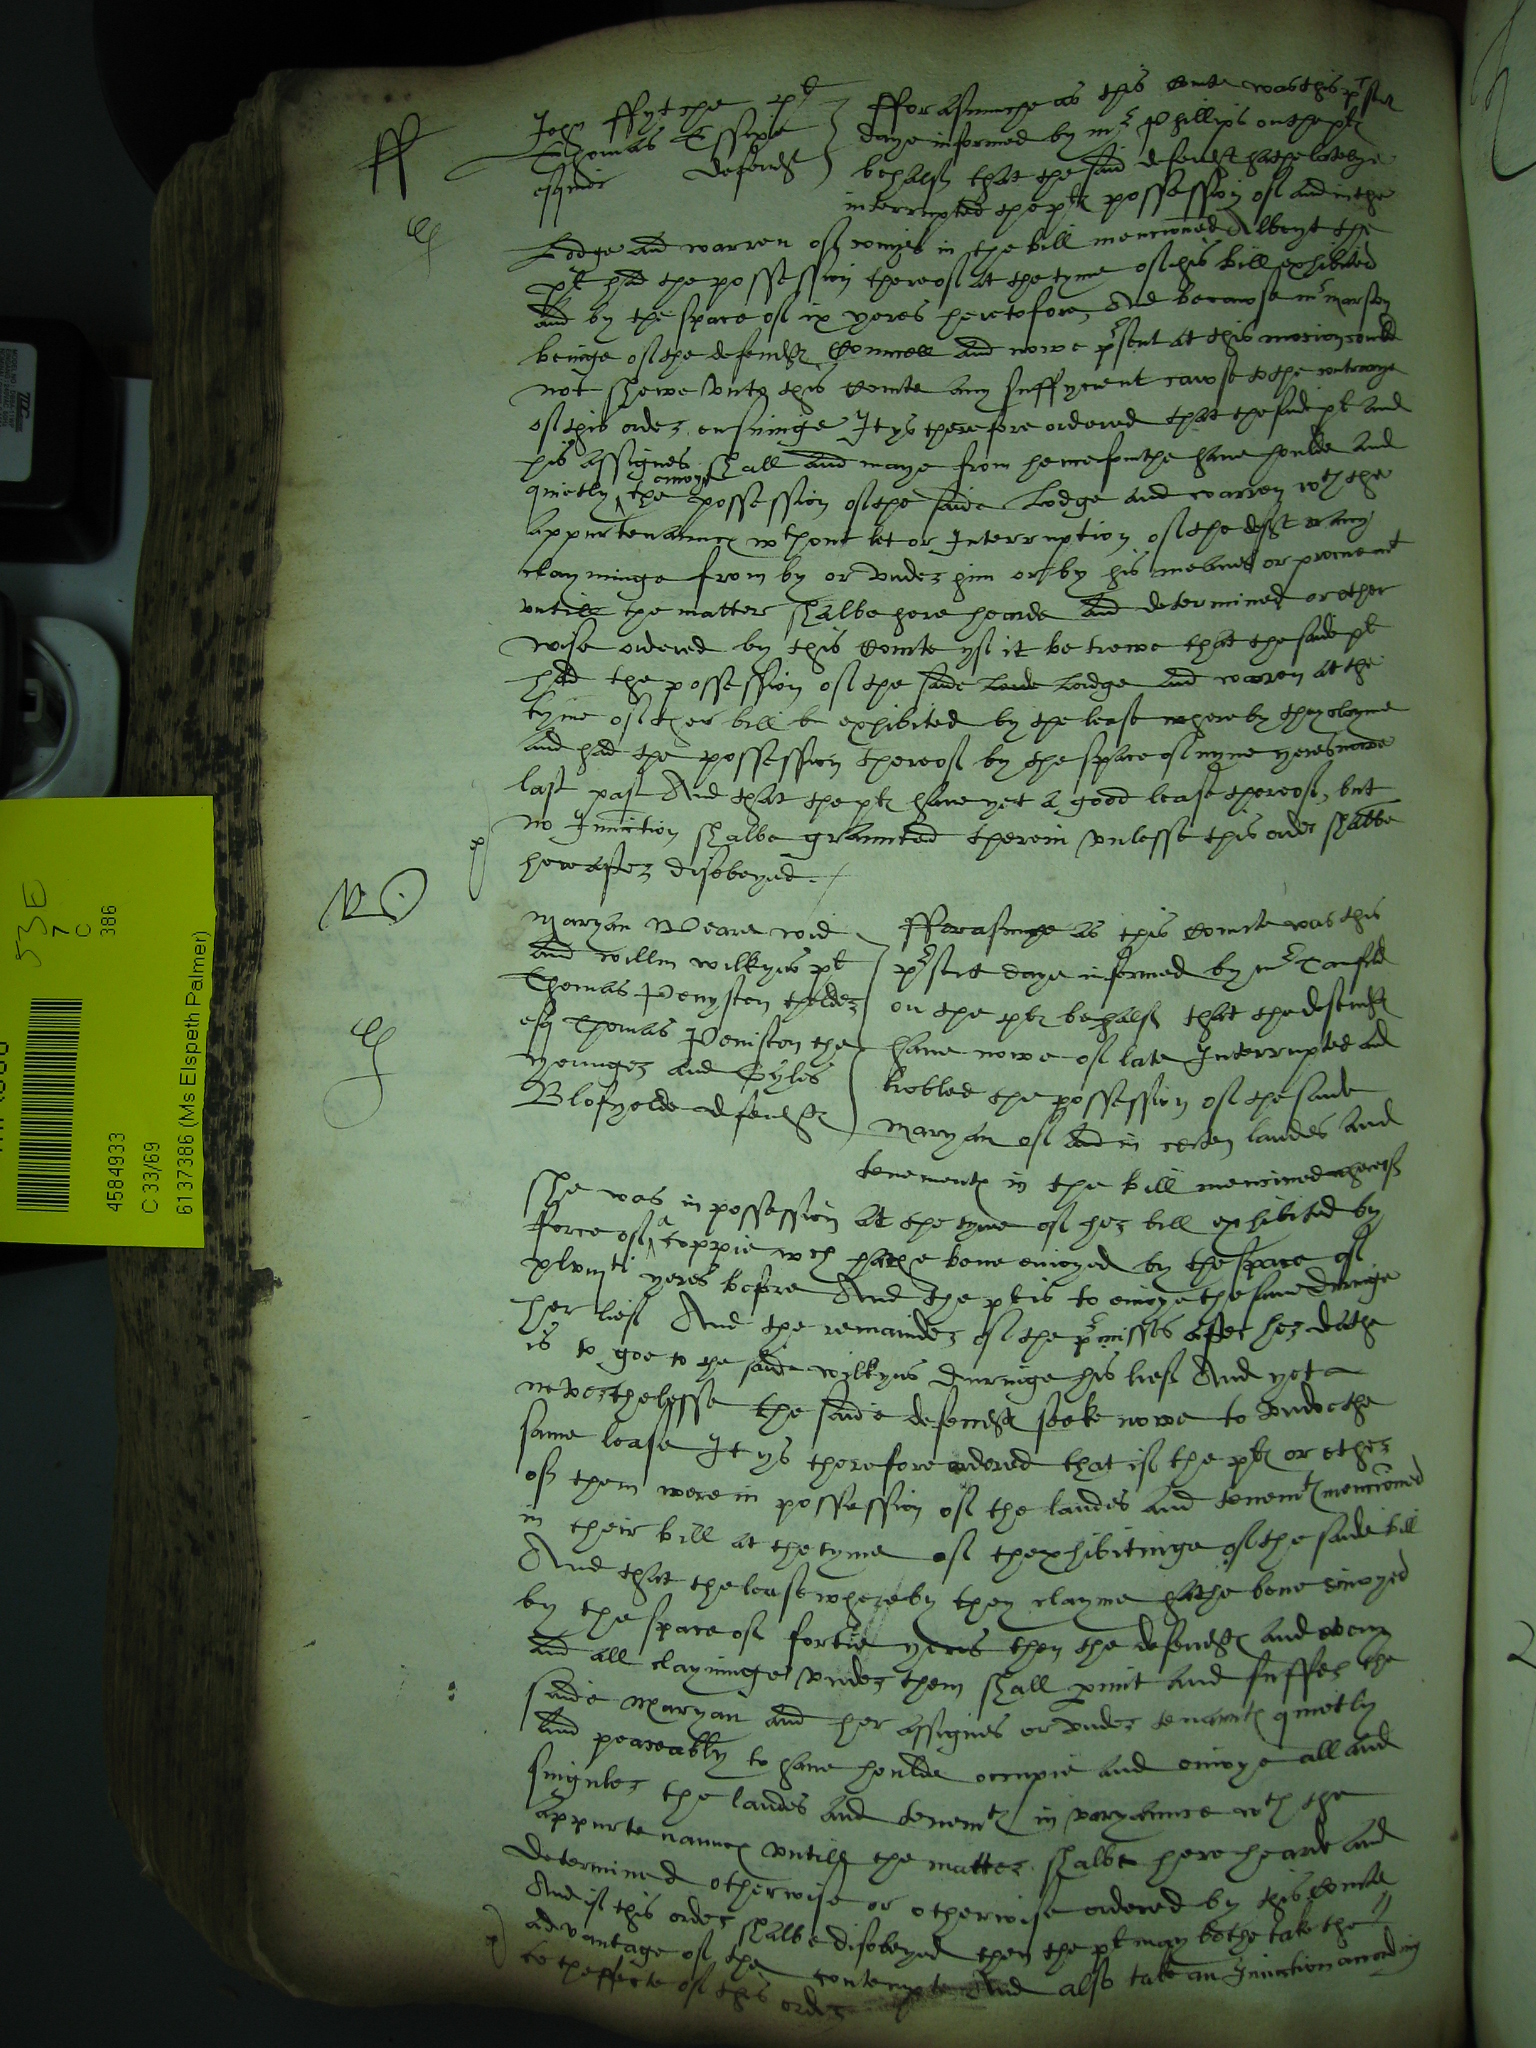 ff
John ffytche plt
Thomas
esquier defendt
fforasmuche as this Courte was this prsent
daye informed by mr Phillips on the pltes
behalf that the said defendt hathe latelye
interrupted the pltes possession of and in the
Lodge and warren of conyes in the bill mencioned Albeyt the
plt had the possession thereof at the tyme of his bill exhibited
and by the space of ix yeres heretofore, And becawse mr marston
beinge of the defendtes Councell and nowe prsent at this mocion could
not shewe unto this Courte any suffycient cawse to the contrarye
of this order ensuinge It ys therefore ordered that the said plt and
his assignes shall and maye from hencefourthe have houlde and
quietly enioye the possession of the saide Lodge and warren wth the
appurtenances wthout let or Interruption of the deft or any
clayminge from by or under him or by his meanes or procurement
untill the matter shalbe here hearde and determined or other
wise ordered by this Courte yf it be trewe that the saide plt
had the possession of the saide Lodge and warren at the
tyme of ther bill exhibited by the lease whereby they clayme
and had the possession thereof by the space of nyne yeres nowe
last past And that the pltes have yet a good lease thereof, but
no Iniunction shalbe graunted therein unlesse this order shalbe
hereafter disobeyed
Maryan Weare wid
and willm wilkyns plt
Thomas Penyston thelder
esq Thomas Peniston the
younger and Gyles
Blofyelde defendtes
fforasmuche as this Courte was this
prsent daye informed by mr Tanfild
on the pltes behalf that the defendtes
have nowe of late Interrupted and
trobled the possession of the saide
Maryan of and in certen landes and
tenementes in the bill mencioned whereof
she was in possession at the tyme of her bill exhibited by
force of a coppie wch hathe bene enioyed by the space of
yeres before And the plt is to enioye the same duringe
her lief And the remainder of the prmisses after her deathe
is to goe to the saide wilkyns duringe his lief And yet
neverthelesse the saide defendtes seeke nowe to undoe the
same lease It ys therefore ordered that if the pltes or ether
of them were in possession of the landes and tenemtes mencioned
in their bill at the tyme of thexhibitinge of the saide bill
And that the lease whereby they clayme hathe bene enioyed
by the space of fortie yeres then the defendtes and every
and all clayminge under them shall prmit and suffer the
saide Maryan and her assignes or under tenantes quietly
and peaceably to have houlde occupie and enioye all and
singuler the landes and tenemtes in varyaunce wth the
appurtenaunces untill the matter shalbe here hearde and
determined otherwise or otherwise ordered by this Courte
And if this order shalbe disobeyed then the plt may bothe take the
advantage of the contempte And also take an Iniunction according
to theffecte of this order
53E
7
C
386
4584933
C 33/69
6137386 (Ms Elspeth Palmer)